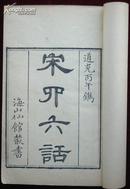 道光丙午鐫
宋四六話
海山仙館叢書